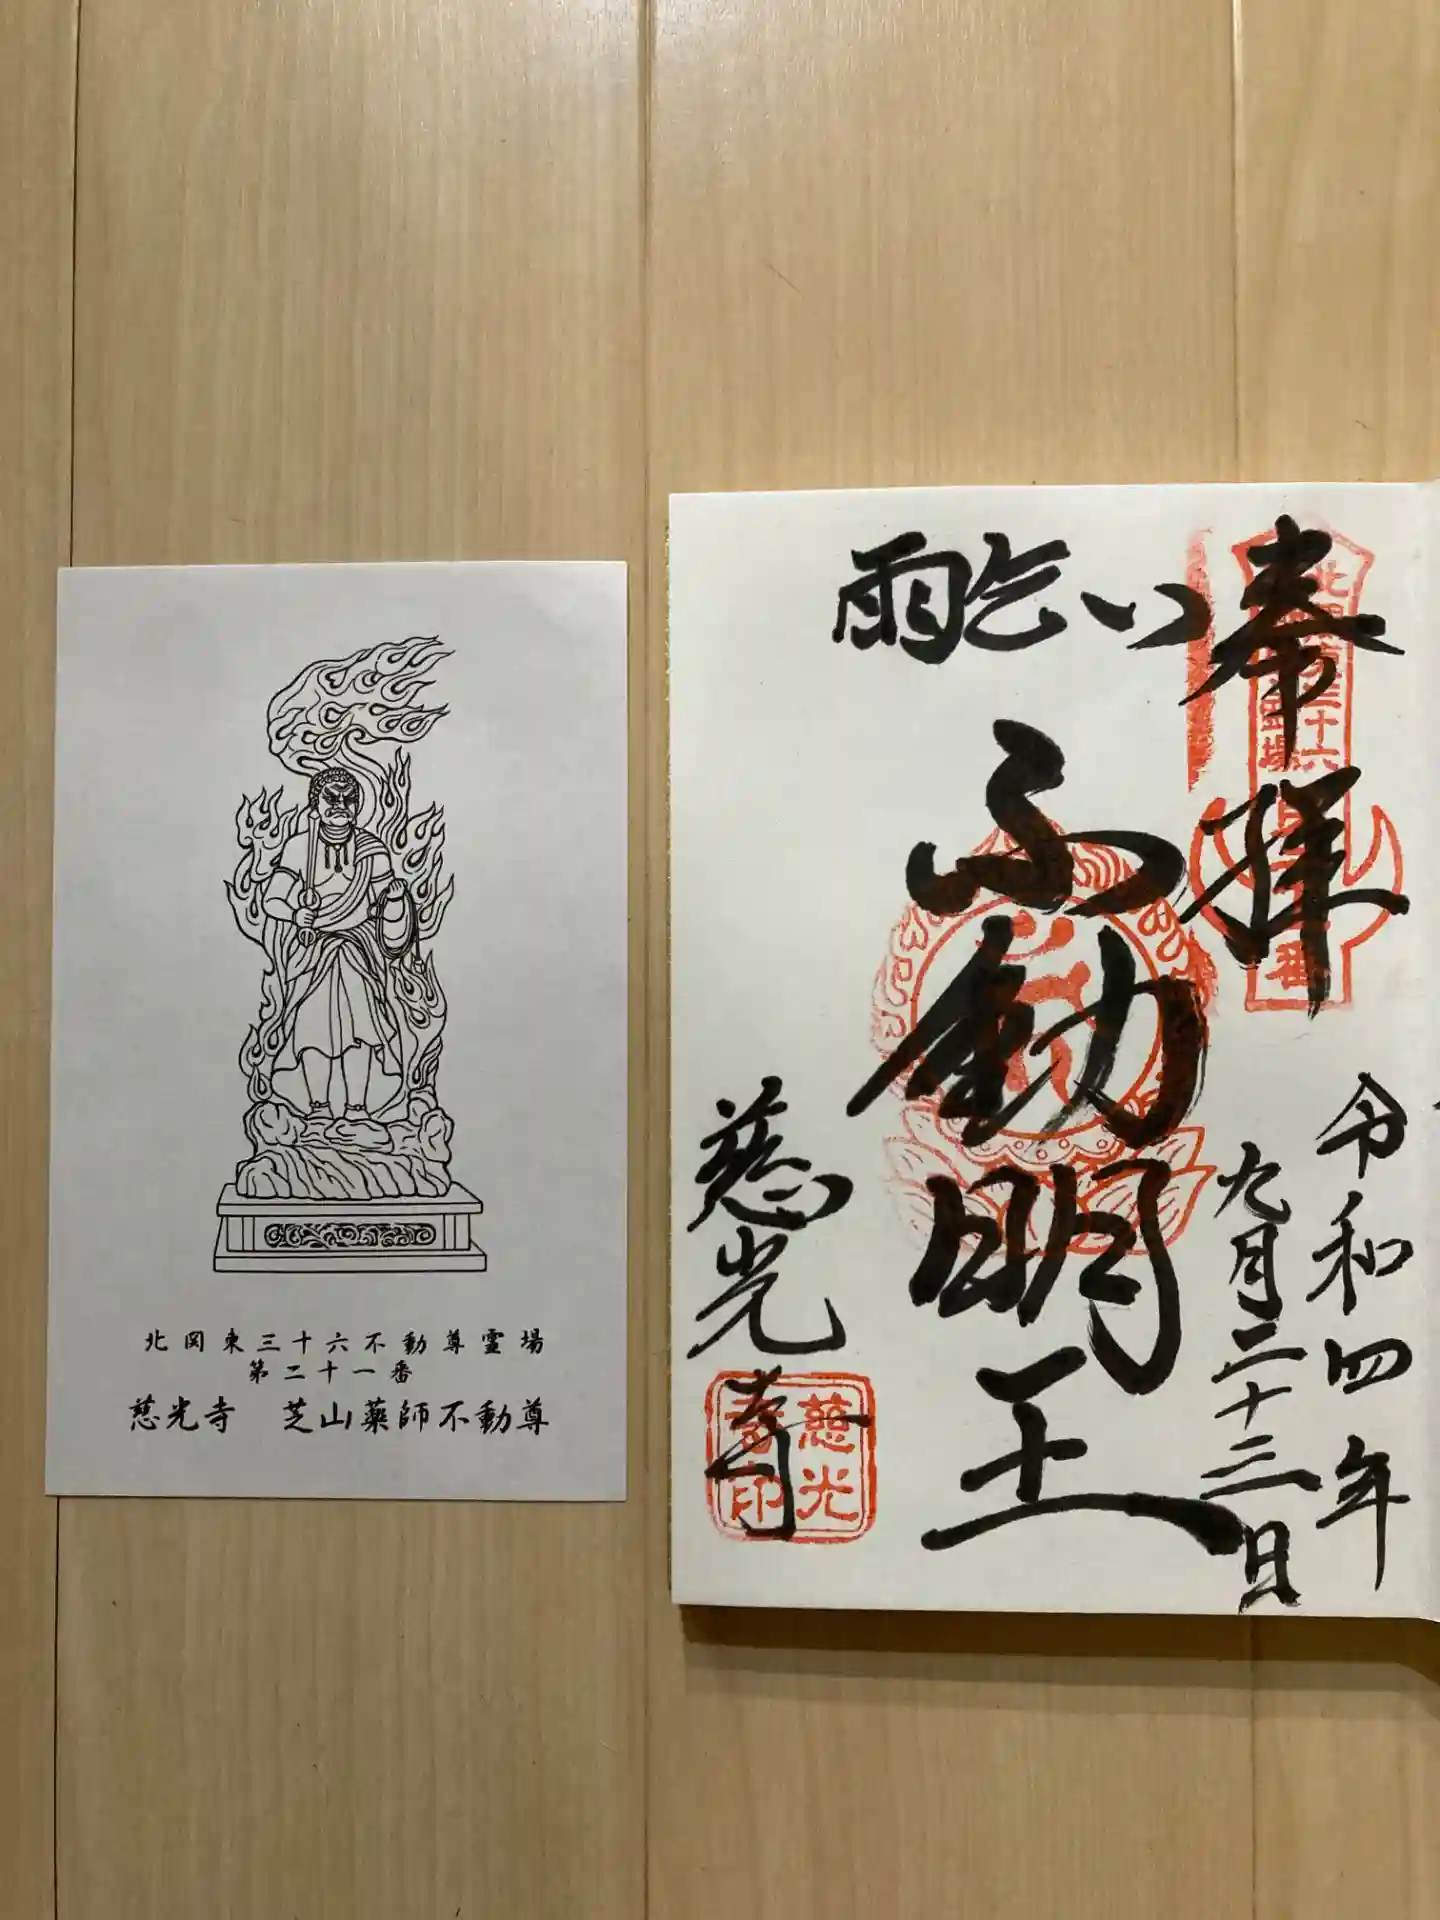 北関東三十六不動尊霊場
第二十一番
慈光寺　芝山薬師不動尊
奉拝
令和四年
九月二十三日
雨乞い
不動明王
慈光寺
慈光
寺印